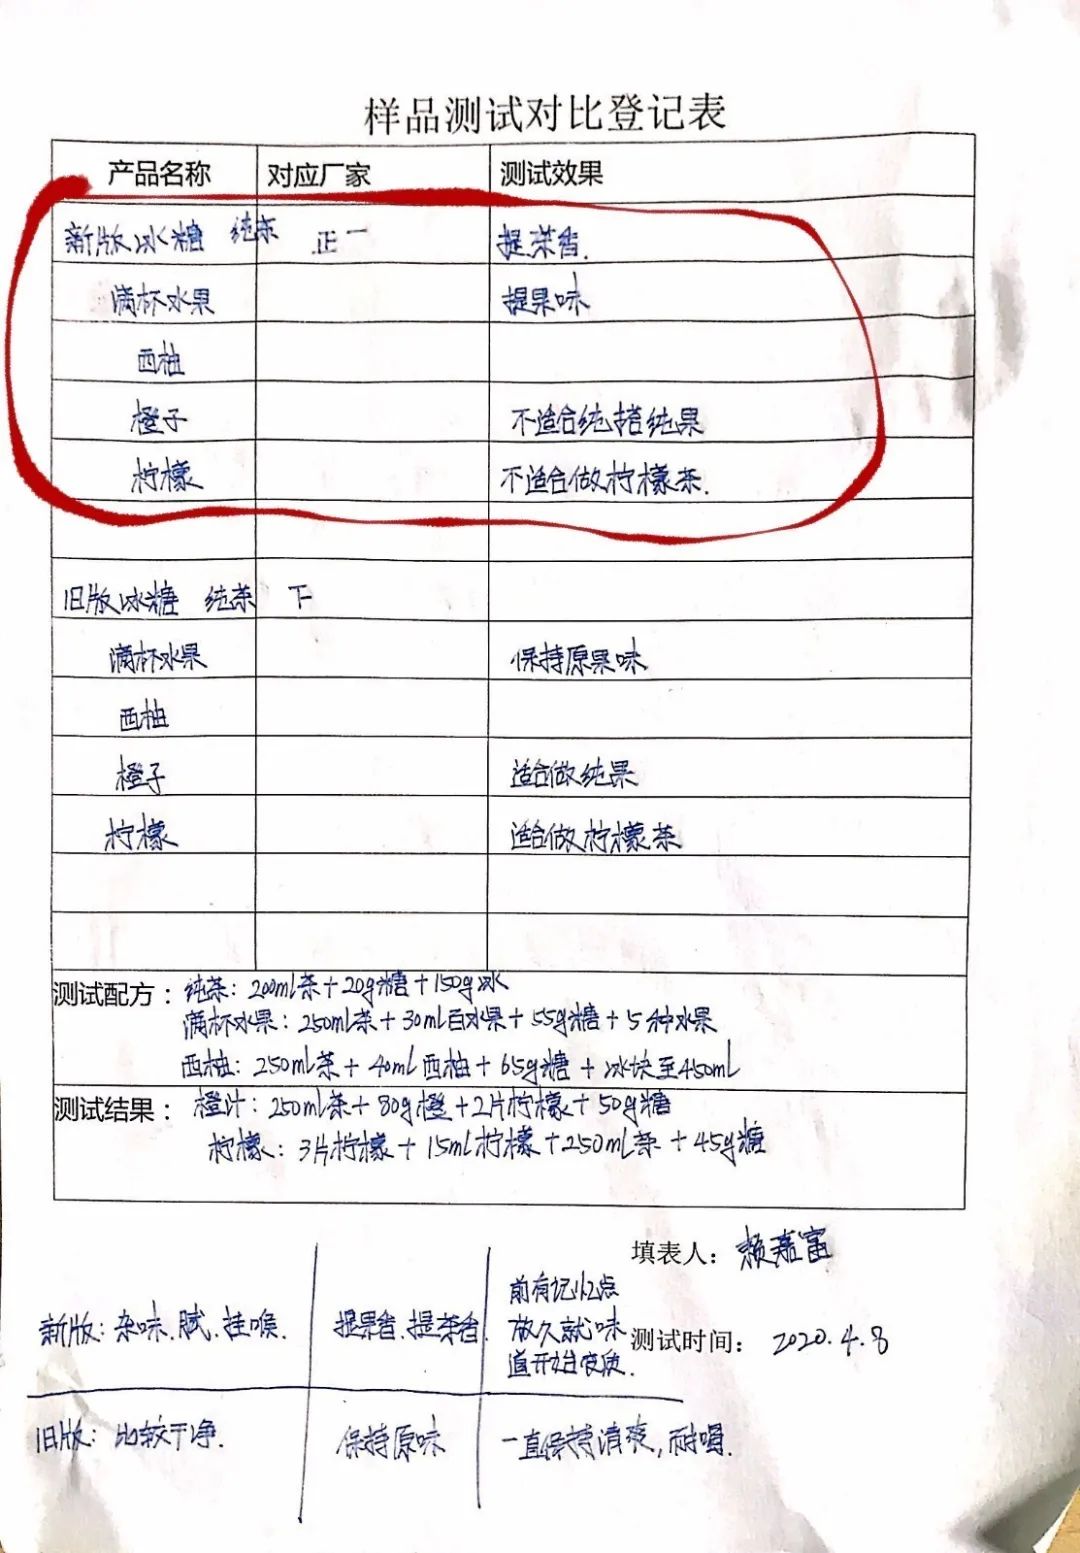 样品测试对比登记表
产品名称 对应厂家 测试效果
新版冰糖 纯茶 正一 提茶香.
满杯水果 提果味
西柚
橙子 不适合纯搭纯果
柠檬 不适合做柠檬茶.
旧版冰糖 纯茶 下
满杯水果 保持原果味
西柚
橙子 适合做纯果
柠檬 适合做柠檬茶
测试配方：纯茶：200ml茶+20g糖+150g冰
满杯水果：250ml茶+30ml百水果+55g糖+5种水果
西柚：250ml茶+40ml西柚+65g糖+冰块至450ml
测试结果：橙汁：250ml茶+80g橙+2片柠檬+50g糖
柠檬：3片柠檬+15ml柠檬+250ml茶+45g糖
填表人：赖嘉富
测试时间：2020.4.8
新版：杂味.腻.挂喉. 提果香.提茶香.
前有记忆点
放久就味
道开始变质.
旧版：比较干净. 保持原味 一直保持清爽,耐喝.